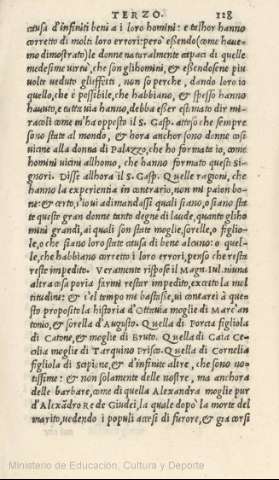 TERZO. 118
causa d'infiniti beni a i loro homini: e talhor hanno
corretto di molti loro errori: però essendo (come haue-
mo dimostrato) le donne naturalmente capaci di quelle
medesime uirtù, che son gli homini, & essendosene piu
uolte ueduto gli effetti, non so perche, dando loro io
quello, che è possibile, che habbiano, & spesso hanno
hauuto, e tutta uia hanno, debba esser estimato dir mi-
racoli come m'ha opposto il S. Gasp. atteso che sempre
sono state al mondo, & hora anchor sono donne cosi
uicine alla donna di Palazzo, che ho formata io, come
homini uicini all homo, che hanno formato questi Si-
gnori. Disse allhora il S. Gasp. Quelle ragioni, che
hanno la experientia in contrario, non mi paion bo-
ne: & certo, s'io ui adimandassi quali siano, o siano sta
te queste gran donne tanto degne di laude, quanto gli ho
mini grandi, ai quali son state moglie, sorelle, o figlio-
le, o che siano loro state causa di bene alcuno: o quel-
le, che habbiano corretto i loro errori, penso che resta
reste impedito. Veramente rispose il Magn. Iul. niuna
altra cosa poria farmi restar impedito, eccetto la mul
titudine: & s'el tempo mi bastasse, ui contarei à que-
sto proposito la historia d'Ottauia moglie di Marc'an
tonio, & sorella d'Augusto. Quella di Porcia figliola
di Catone, & moglie di Bruto. Quella di Gaia Ce-
cilia moglie di Tarquino Prisco. Quella di Cornelia
figliola di Scipione, & d'infinite altre, che sono no-
tissime: & non solamente delle nostre, ma anchora
delle barbare, come di quella Alexandra moglie pur
d'Alexādro Re de Giudei, la quale dopò la morte del
marito, uedendo i populi accesi di furore, & gia corsi
Ministerio de Educación, Cultura y Deporte